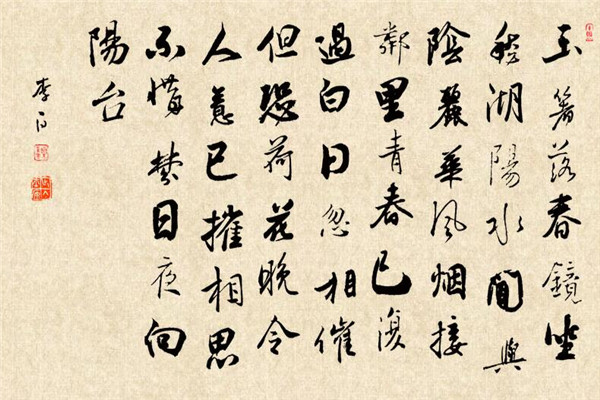 玉箸落春鏡坐
愁湖陽水聞與
陰麗華風烟接
鄰里青春已復
過白日忽相催
但恐荷花晚令
人意已摧相思
不惜夢日夜向
陽台
李白